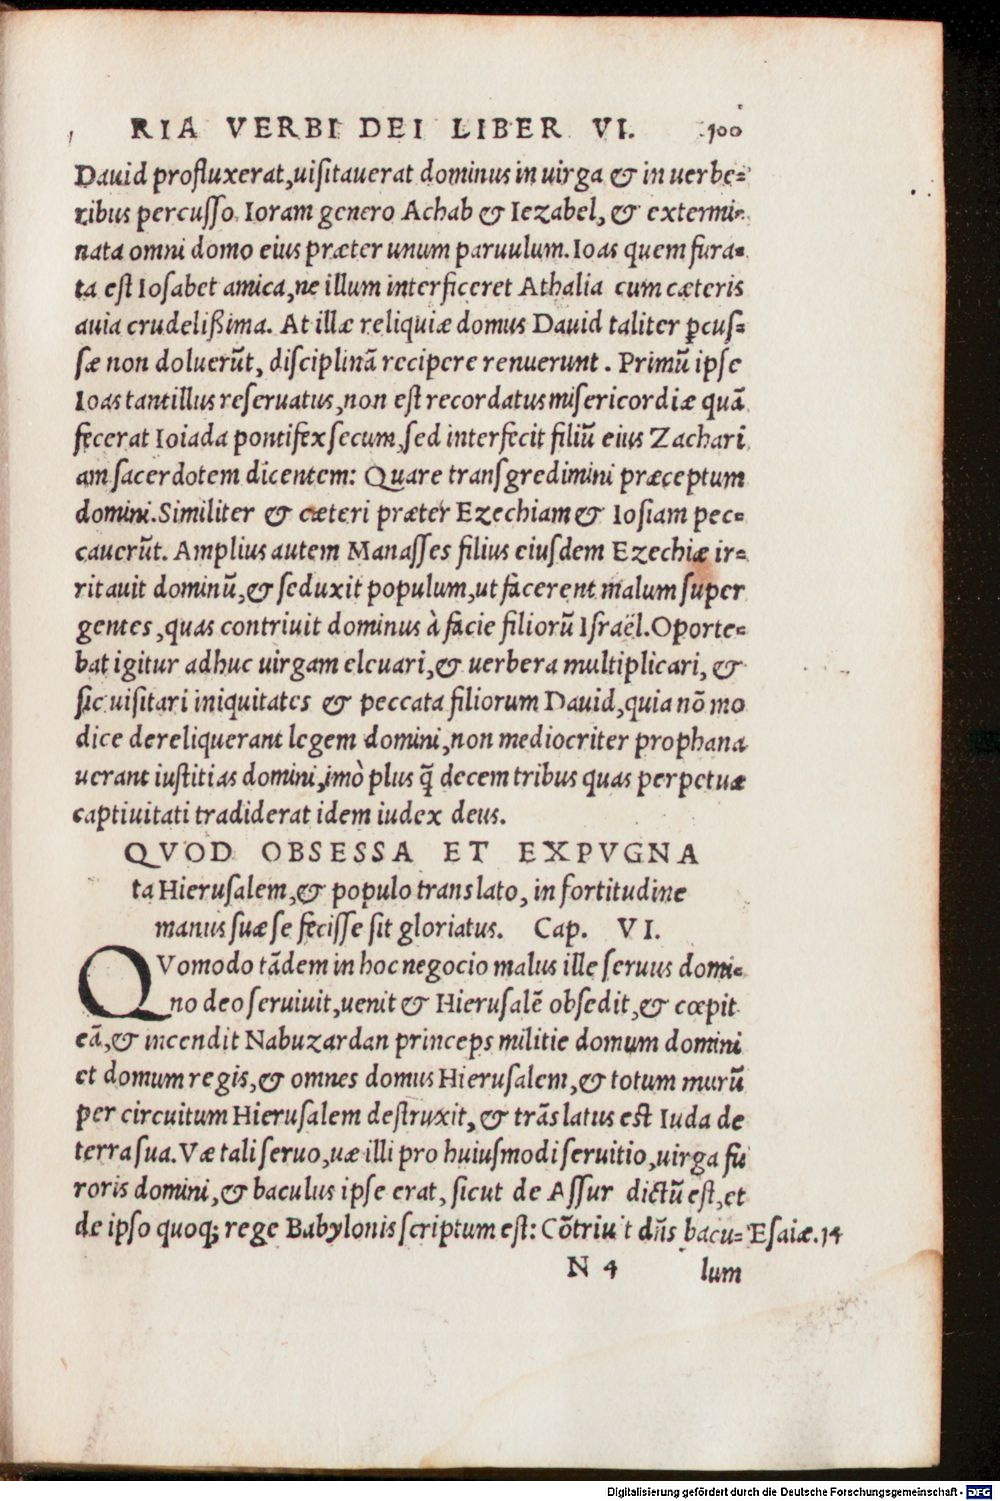 RIA VERBI DEI LIBER VI. 100
Dauid profluxerat,uisitauerat dominus in uirga & in uerbe=
ribus percusso Ioram genero Achab & Iezabel, & extermi=
nata omni domo eius præter unum paruulum. Ioas quem fura=
ta est Iosabet amica,ne illum interficeret Athalia cum cæteris
auia crudelißima. At illæ reliquiæ domus Dauid taliter ꝑcus=
sæ non doluerũt, disciplinã recipere renuerunt. Primũ ipse
Ioas tantillus reseruatus,non est recordatus misericordiæ quã
fecerat Ioiada pontifex secum,sed interfecit filiũ eius Zachari
am sacerdotem dicentem: Quare transgredimini præceptum
domini.Similiter & cæteri præter Ezechiam & Iosiam pec=
cauerũt. Amplius autem Manasses filius eiusdem Ezechiæ ir=
ritauit dominũ,& seduxit populum,ut facerent malum super
gentes,quas contriuit dominus à facie filiorũ Israël.Oporte=
bat igitur adhuc uirgam eleuari,& uerbera multiplicari, &
sic uisitari iniquitates & peccata filiorum Dauid,quia nõ mo
dice dereliquerant legem domini,non mediocriter prophana
uerant iustitias domini,imò plus q̃ decem tribus quas perpetuæ
captiuitati tradiderat idem iudex deus.
QVOD OBSESSA ET EXPVGNA
ta Hierusalem,& populo translato, in fortitudine
manus suæ se fecisse sit gloriatus. Cap. VI.
QVomodo tãdem in hoc negocio malus ille seruus domi=
no deo seruiuit,uenit & Hierusalẽ obsedit,& cœpit
eã,& incendit Nabuzardan princeps militie domum domini
et domum regis,& omnes domus Hierusalem,& totum murũ
per circuitum Hierusalem destruxit, & trãslatus est Iuda de
terra sua.Væ tali seruo,uæ illi pro huiusmodi seruitio,uirga fu
roris domini,& baculus ipse erat, sicut de Assur dictũ est,et
de ipso quoq; rege Babylonis scriptum est: Cõtriuit dñs bacu= Esaiæ.14
N 4 lum
Digitalisierung gefördert durch die Deutsche Forschungsgemeinschaft - DFG